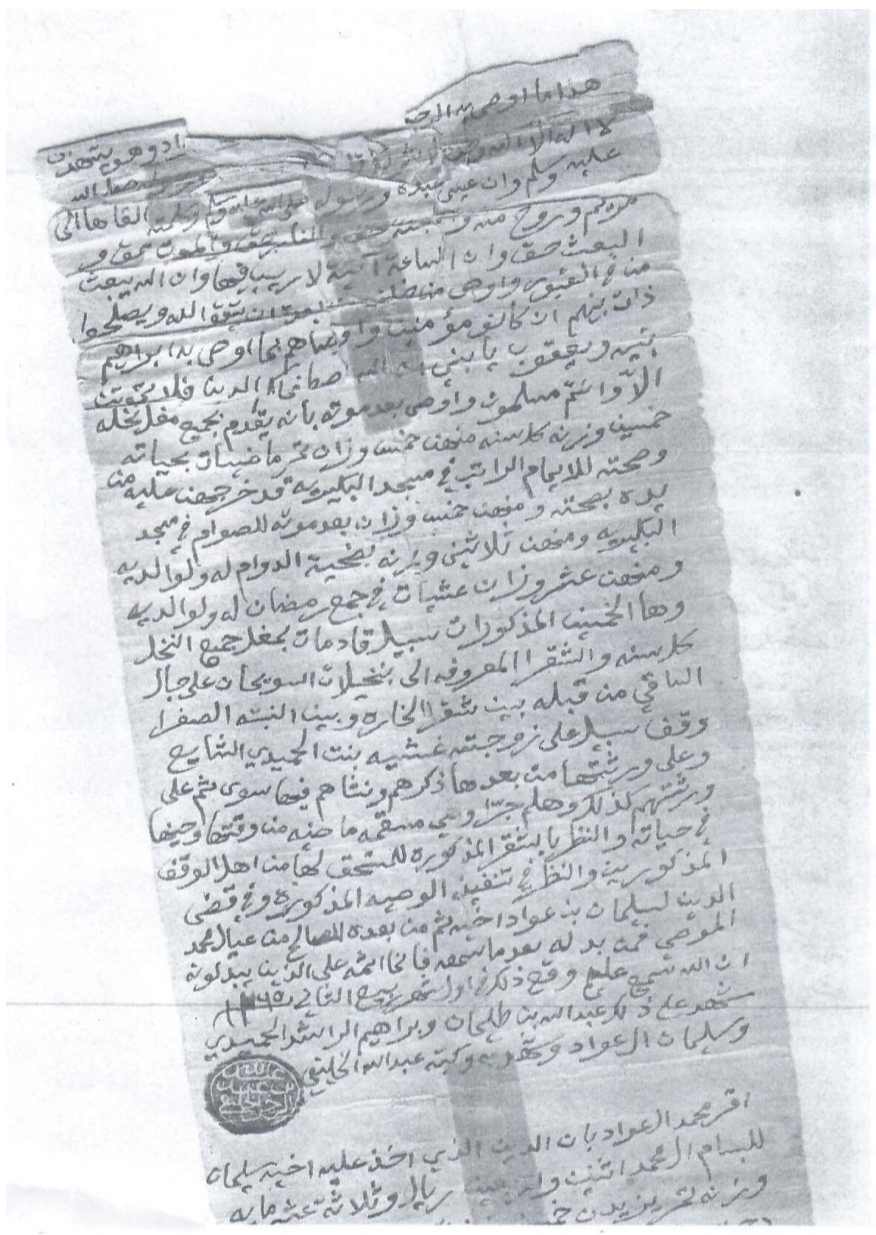 هذا ما اوصى به
اد وهو يشهد ان
لا اله الا الله وحده لا شريك له
عليه وسلم وان عيسى عبده ورسوله وكلمته القاها الى
مريم وروح منه و الجنة حق و النار حق والموت حق و
البعث حق وان الساعة آتية لا ريب فيها وان الله يبعث
من في القبور واوصى من خلف ان يتقو الله ويصلحوا
ذات بينهم ان كانو مؤمنين واوصاهم بما اوصى به ابراهيم
بنيه ويعقوب يا بني ان الله اصطفى لكم الدين فلا تموتن
الا وانتم مسلمون واوصى بعد موته بانه يقدم بجميع مغل نخله
خمسين وزنه كل سنه منهن خمس وزان تمر ماضيات بحياته
وصحته للامام الراتب في مسجد البكيريه قد خرجهن عليه من
يده بصحته ومنهن خمس وزان بعد موته للصوام في مسجد
البكيريه ومنهن ثلاثين وزنه بضحية الدوام له ولوالديه
ومنهن عشر وزان عشيات في جمع رمضان له ولوالديه
وها الخمسين المذكورات سبيل قادمات بمغل جميع النخل
كل سنه والشقرا المعروفه الى بنخيلات السويحان على جال
الساقي من قبله بين شقرا الخاره وبين النبته الصفرا
وقف سبيل على زوجته غشيه بنت الحميدي الشايع
وعلى ورثتها من بعدها ذكرهم ونثاهم فيها سوى ثم على
ورثتهم كذلك وهلم جرا وهي مسقمه ماضيه من وقتها وحينها
في حياته والنظر بالشقر المذكورة للمستحق لها من اهل الوقف
المذكورين والنظر في تنفيذ الوصيه المذكورة وفي قضى
الدين لسليمان بن عواد اخيه ثم من بعده للصالح من عيال محمد
الموصي فمن بدله بعد ما سمعه فانما اثمه على الذين يبدلونه
ان الله سميع عليم وقع ذلك في اول شهر ربيع الثاني
شهد على ذلك عبدالله بن طليحان وبراهيم الراشد الحميدي
وسليمان العواد وشهد به وكتبه عبدالله الخليفي
اقر محمد العواد بان الدين الذي اخذ عليه اخيه سليمان
للبسام ال محمد اثنين واربعين ريال وثلاثة عشر مايه
وزنه تمر يزيدن